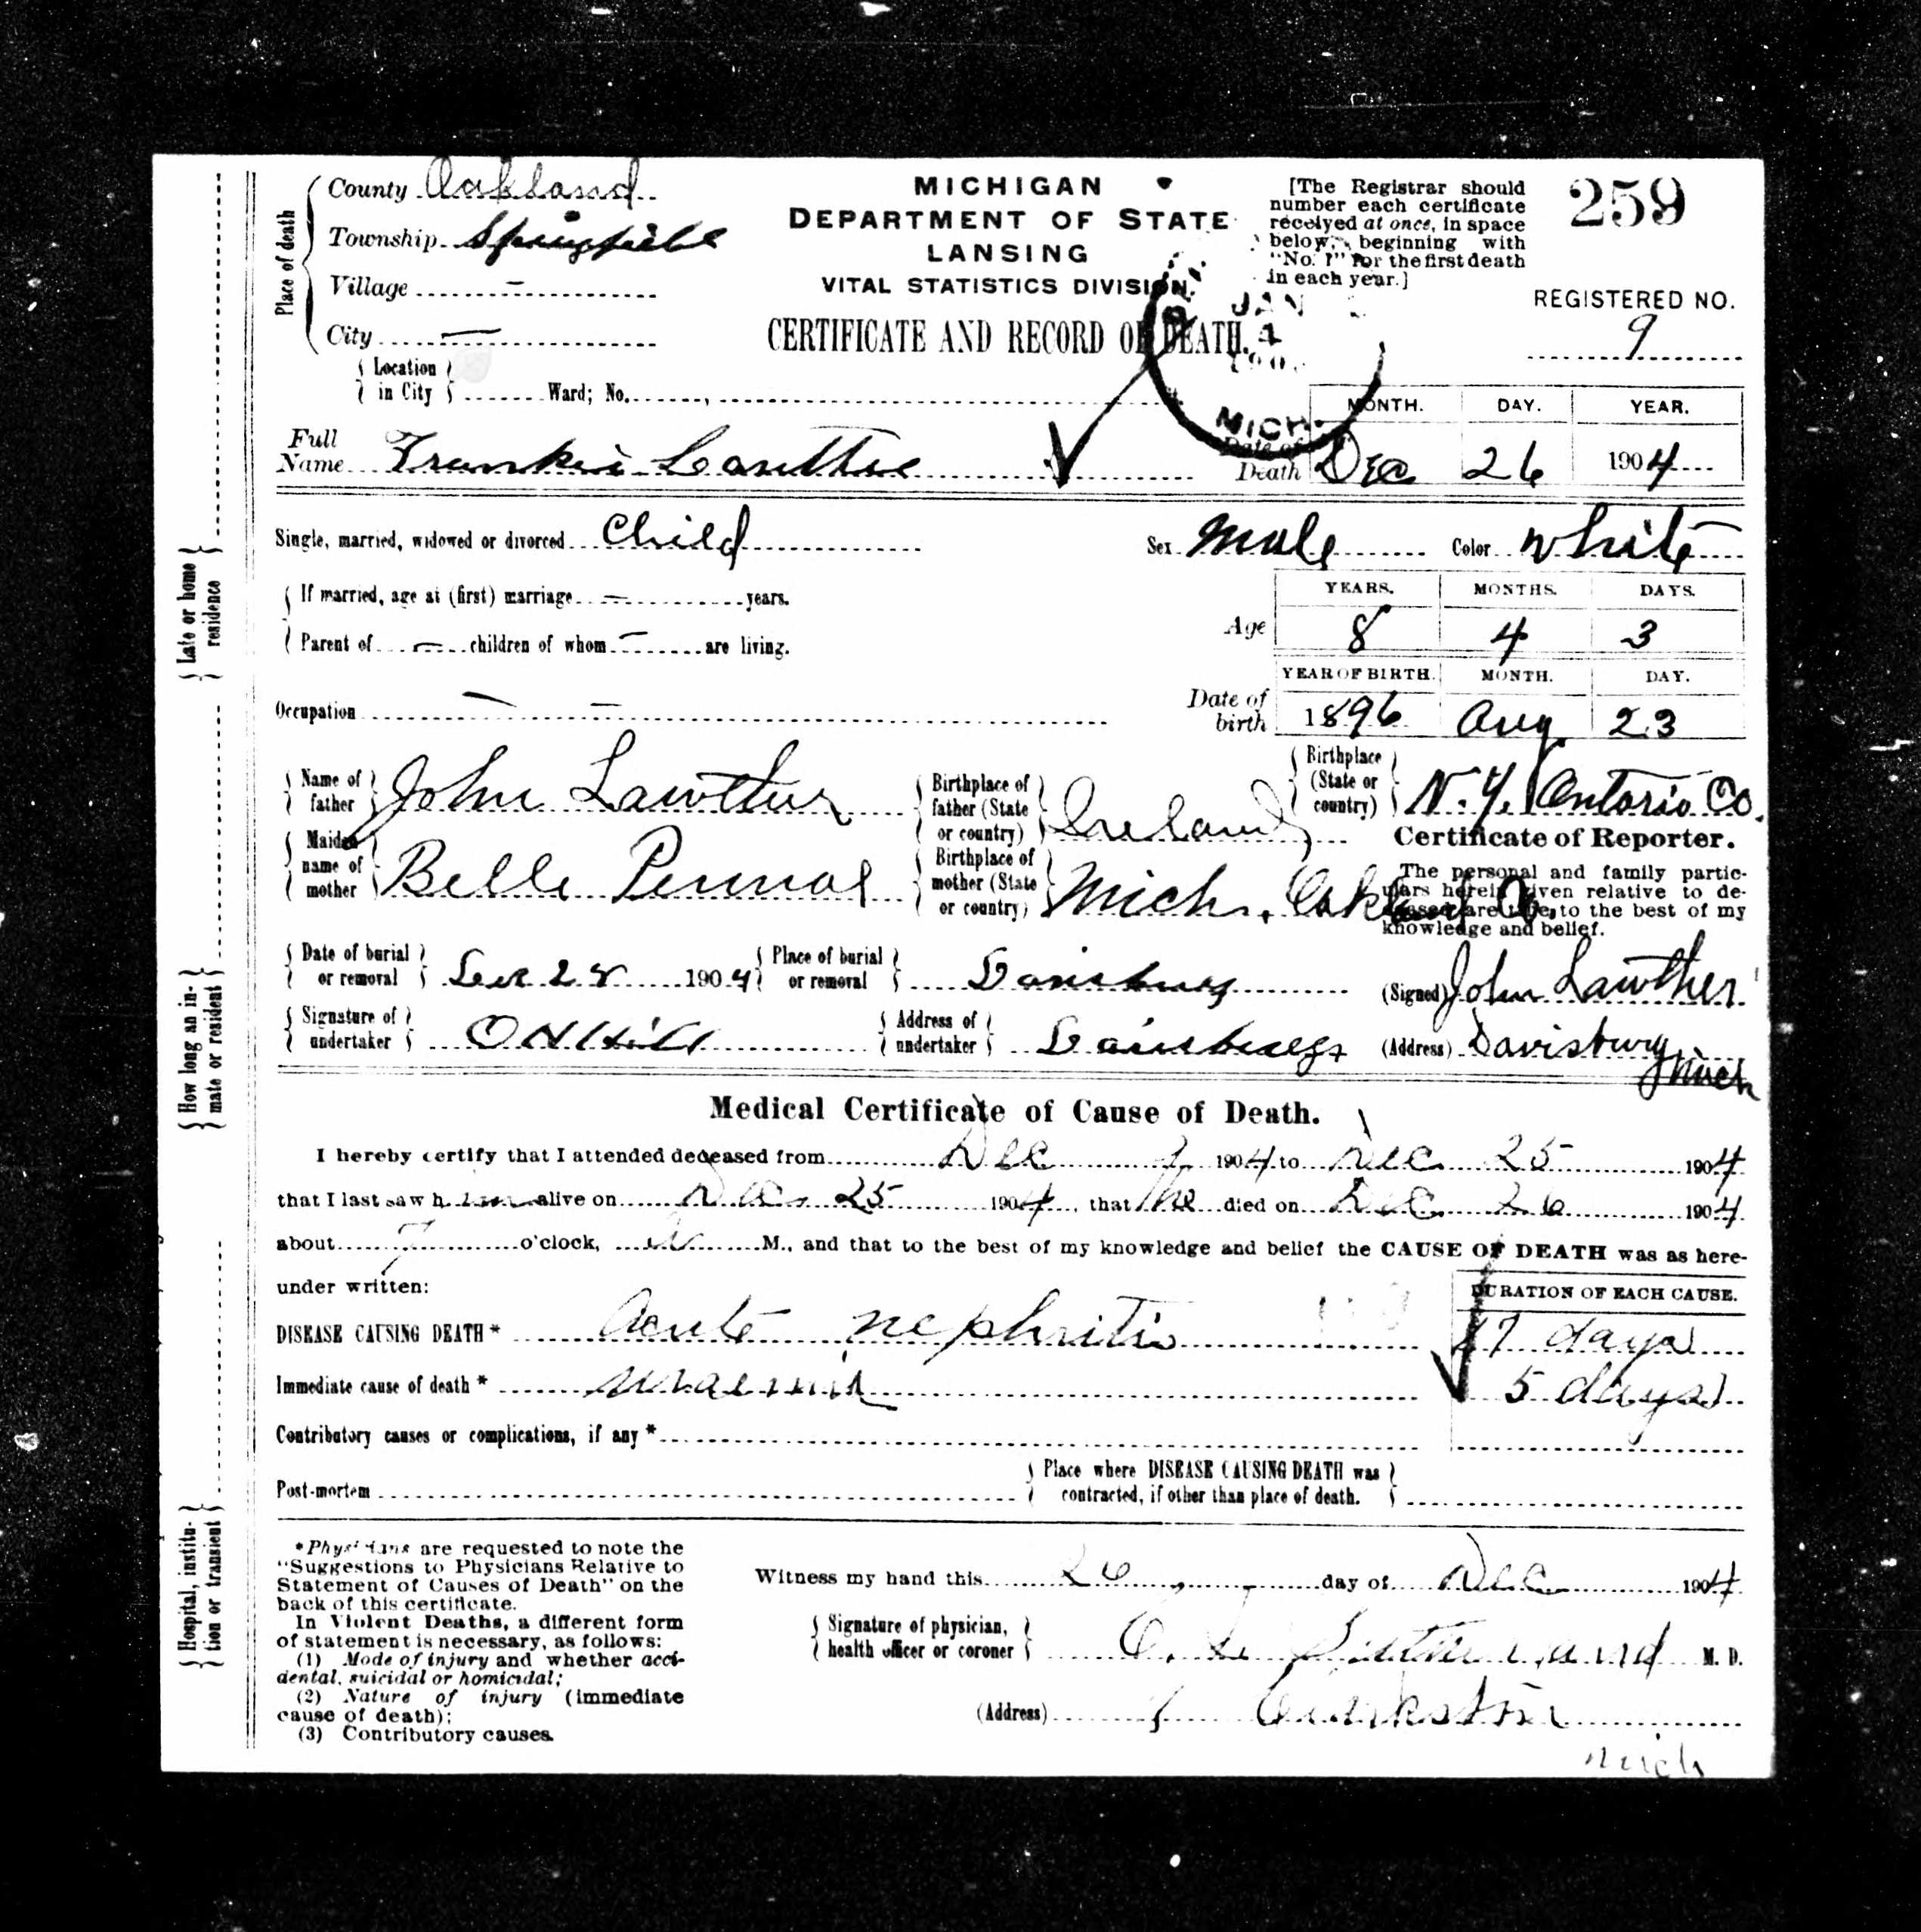 County Oakland
Township Springfield
Village –
City –
Place of death
Location in City Ward; No. ,
MICHIGAN
DEPARTMENT OF STATE
LANSING
VITAL STATISTICS DIVISION.
CERTIFICATE AND RECORD OF DEATH.
[The Registrar should
number each certificate
received at once, in space
below, beginning with
"No. 1" for the first death
in each year.]
259
REGISTERED NO.
9
JAN
4
190
MICH.
Full Name Frankie Lawther
Date of Death
MONTH. DAY. YEAR.
Dec 26 1904
Single, married, widowed or divorced Child
Sex Male Color White
If married, age at (first) marriage – years.
Parent of – children of whom – are living.
Age
YEARS. MONTHS. DAYS.
8 4 3
Occupation – –
Date of birth
YEAR OF BIRTH. MONTH. DAY.
1896 Aug 23
Name of father John Lawther
Birthplace of father (State or country) Ireland
Birthplace (State or country) N.Y. Ontario Co.
Maiden name of mother Belle Pennal
Birthplace of mother (State or country) Mich. Oakland Co.
Certificate of Reporter.
The personal and family partic-
ulars herein given relative to de-
ceased are true to the best of my
knowledge and belief.
Date of burial or removal Dec 28 1904
Place of burial or removal Davisburg
(Signed) John Lawther
Signature of undertaker O N Hill
Address of undertaker Davisburg
(Address) Davisburg
Mich
Medical Certificate of Cause of Death.
I hereby certify that I attended deceased from Dec 1904 to Dec 25 1904
that I last saw h im alive on Dec 25 1904, that he died on Dec 26 1904
about 7 o'clock, A M., and that to the best of my knowledge and belief the CAUSE OF DEATH was as here-
under written:
DURATION OF EACH CAUSE.
DISEASE CAUSING DEATH* Acute nephritis 17 days
Immediate cause of death* Uraemia 5 days
Contributory causes or complications, if any*
Post-mortem
Place where DISEASE CAUSING DEATH was contracted, if other than place of death.
*Physicians are requested to note the
"Suggestions to Physicians Relative to
Statement of Causes of Death" on the
back of this certificate.
In Violent Deaths, a different form
of statement is necessary, as follows:
(1) Mode of injury and whether acci-
dental, suicidal or homicidal;
(2) Nature of injury (immediate
cause of death);
(3) Contributory causes.
Witness my hand this 26 day of Dec 1904
Signature of physician, health officer or coroner Sutherland M. D.
(Address) Clarkston
Mich
Late or home residence
How long an inmate or resident
Hospital, institution or transient